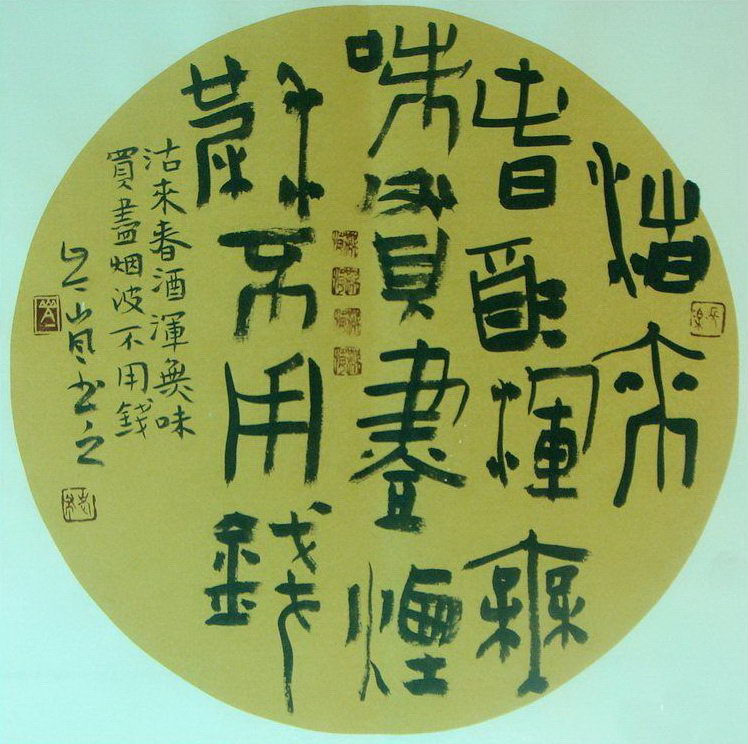 沽來
春酒渾無
味買盡煙
波不用錢
沽来春酒渾無味
買盡烟波不用錢
书之